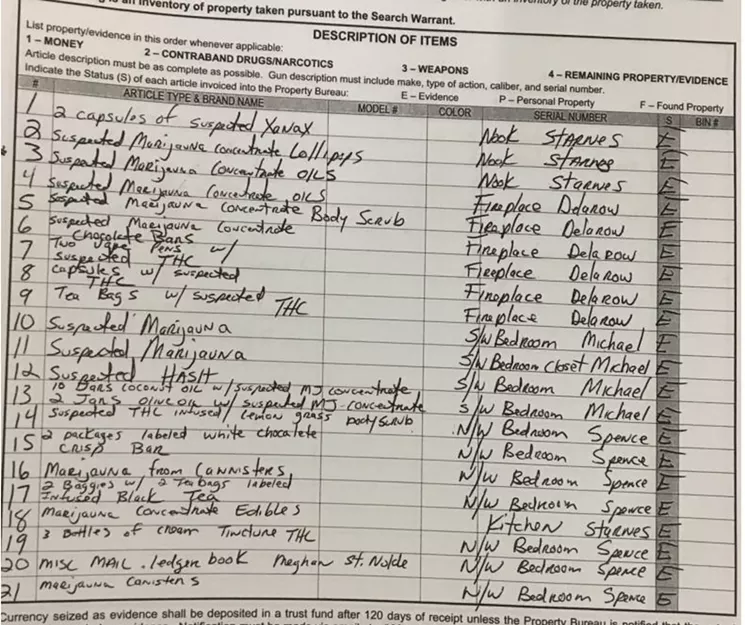 is an inventory of property taken pursuant to the Search Warrant.
inventory of the property taken.
DESCRIPTION OF ITEMS
List property/evidence in this order whenever applicable:
1 – MONEY 2 – CONTRABAND DRUGS/NARCOTICS 3 – WEAPONS 4 – REMAINING PROPERTY/EVIDENCE
Article description must be as complete as possible. Gun description must include make, type of action, caliber, and serial number.
Indicate the Status (S) of each article invoiced into the Property Bureau: E – Evidence P – Personal Property F – Found Property
# ARTICLE TYPE & BRAND NAME MODEL # COLOR SERIAL NUMBER S BIN #
1 2 capsules of suspected Xanax Nook Starnes E
2 Suspected Marijauna Concentrate Lollipops Nook Starnes E
3 Suspected Marijauna Concentrate OILS Nook Starnes E
4 Suspected Marijauna Concentrate OILS Fireplace Delarow E
5 Suspected Marijauna Concentrate Body Scrub Fireplace Delarow E
6 Suspected Marijauna Concentrate Fireplace Delarow E
Chocolate Bars
7 Two Vape Pens w/ Fireplace Delarow E
Suspected THC
8 Capsules w/ suspected Fireplace Delarow E
THC
9 Tea Bags w/ suspected THC Fireplace Delarow E
10 Suspected Marijauna S/W Bedroom Michael E
11 Suspected Marijauna S/W Bedroom Closet Michael E
12 Suspected HASH S/W Bedroom Michael E
13 10 Bars coconut oil w/ suspected MJ concentrate S/W Bedroom Michael E
2 Jars olive oil w/ suspected MJ concentrate
14 Suspected THC infused/lemon grass body scrub N/W Bedroom Spence E
15 2 packages labeled white chocalete N/W Bedroom Spence E
crisp Bar
16 Marijauna from Cannisters N/W Bedroom Spence E
17 2 Baggies w/ 2 Tea bags labeled N/W Bedroom Spence E
Infused Black Tea
18 Marijauna Concentrate Edibles Kitchen Starnes E
19 3 Bottles of cream Tincture THC N/W Bedroom Spence E
20 MISC MAIL. ledger book Meghan St. Nolde N/W Bedroom Spence E
21 Marijauna Canisters N/W Bedroom Spence E
Currency seized as evidence shall be deposited in a trust fund after 120 days of receipt unless the Property Bureau is notified that the